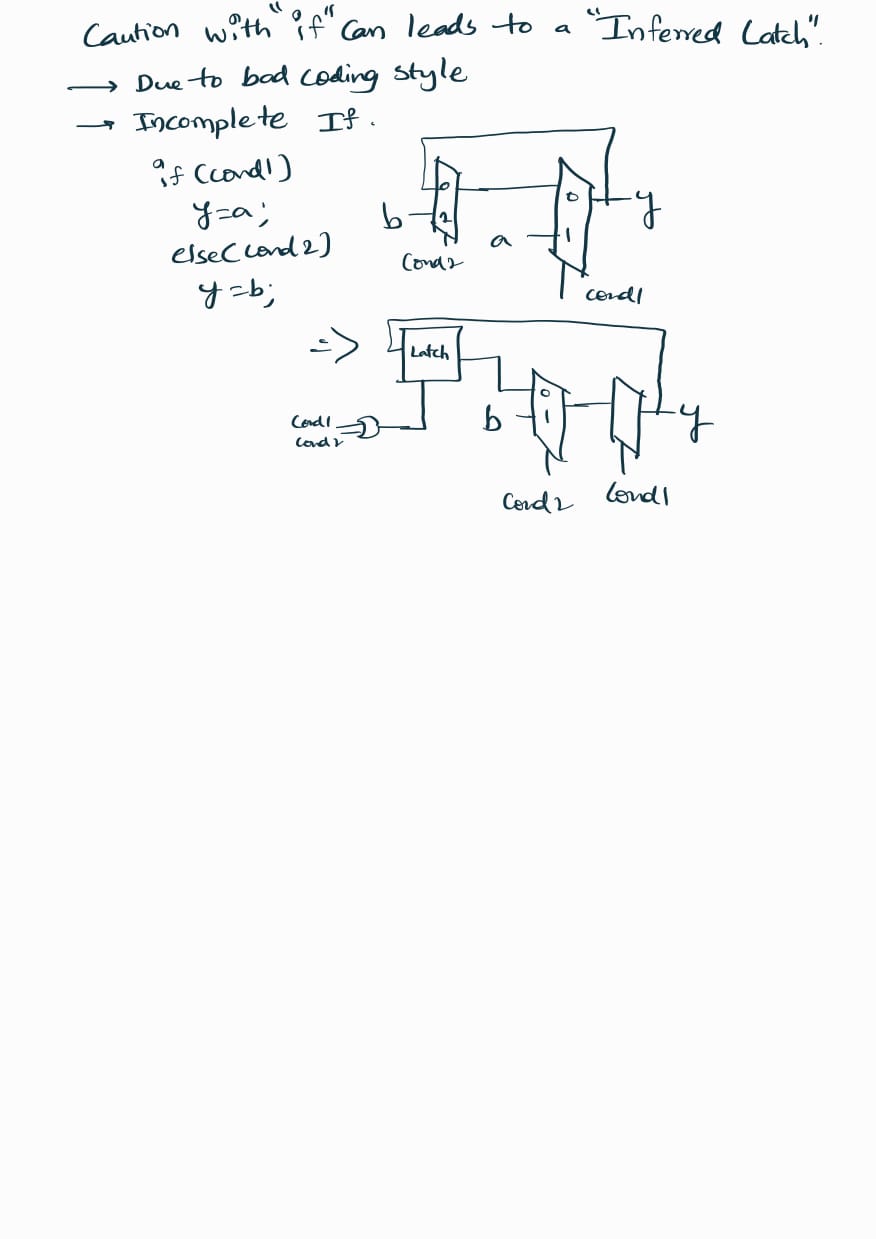 Caution with "if" Can leads to a "Inferred Latch".
→ Due to bad coding style
→ Incomplete If.
if (cond1)
y=a;
else(cond2)
y=b;
0
b
2
Cond2
0
a
1
y
cond1
=>
Latch
Cond1
Cond2
b
0
1
y
Cond2
Cond1